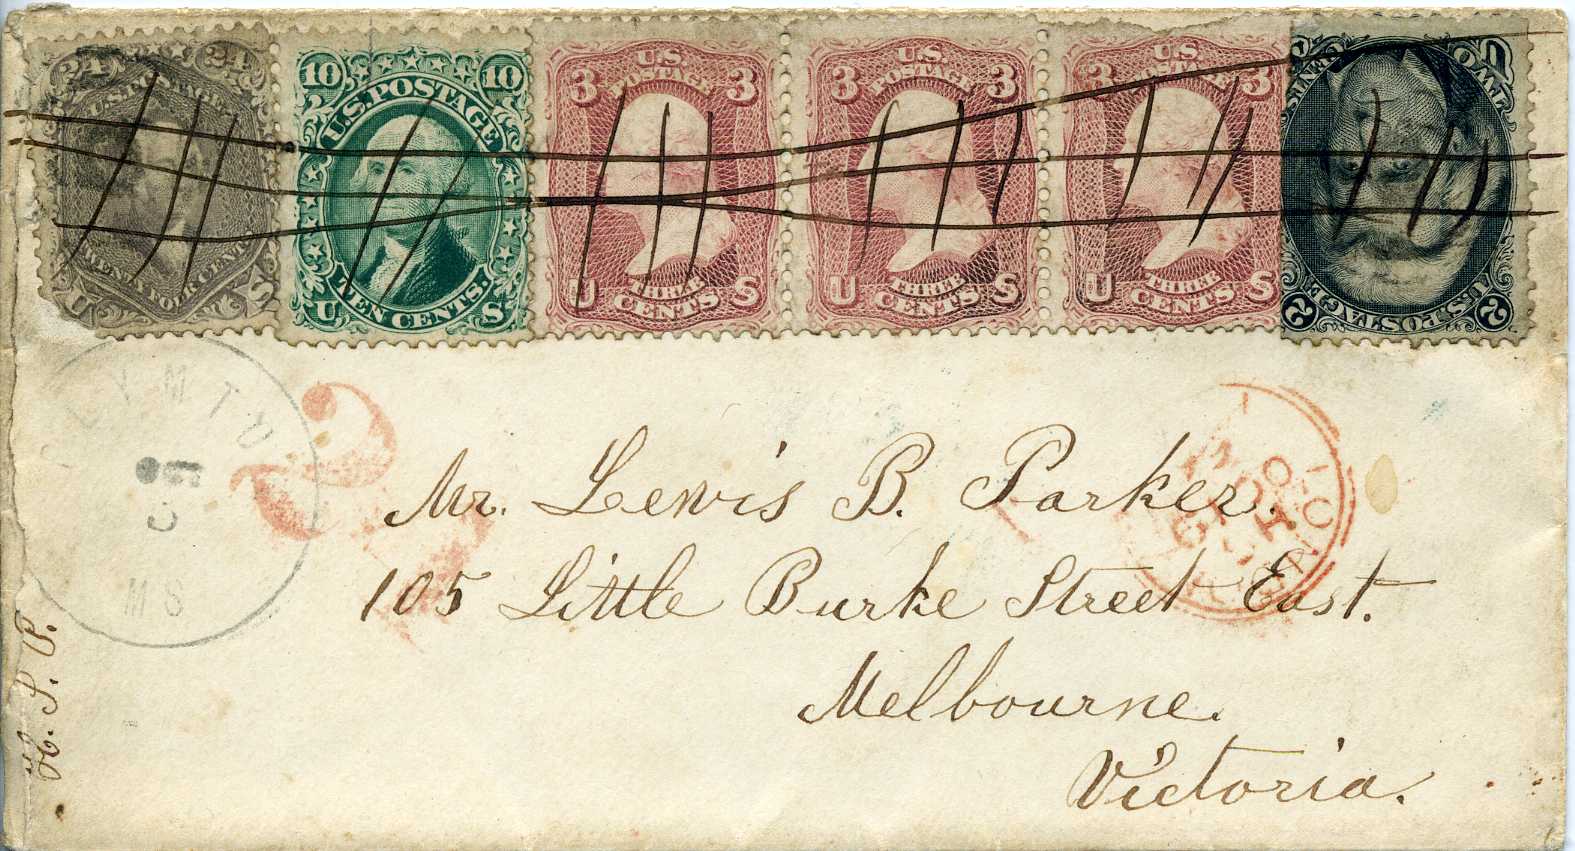 24 24
U.S. POSTAGE
TWENTY FOUR CENTS
U S
10 10
U.S. POSTAGE
TEN CENTS.
U S
U.S. POSTAGE
3 3
THREE CENTS
U S
U.S. POSTAGE
3 3
THREE CENTS
U S
U.S. POSTAGE
3 3
THREE CENTS
U S
U.S. POSTAGE
2 2
TWO CENTS
U S
PLYMTO
MS
Mr. Lewis B. Parker.
105 Little Burke Street East.
Melbourne.
Victoria.
H. P. B.